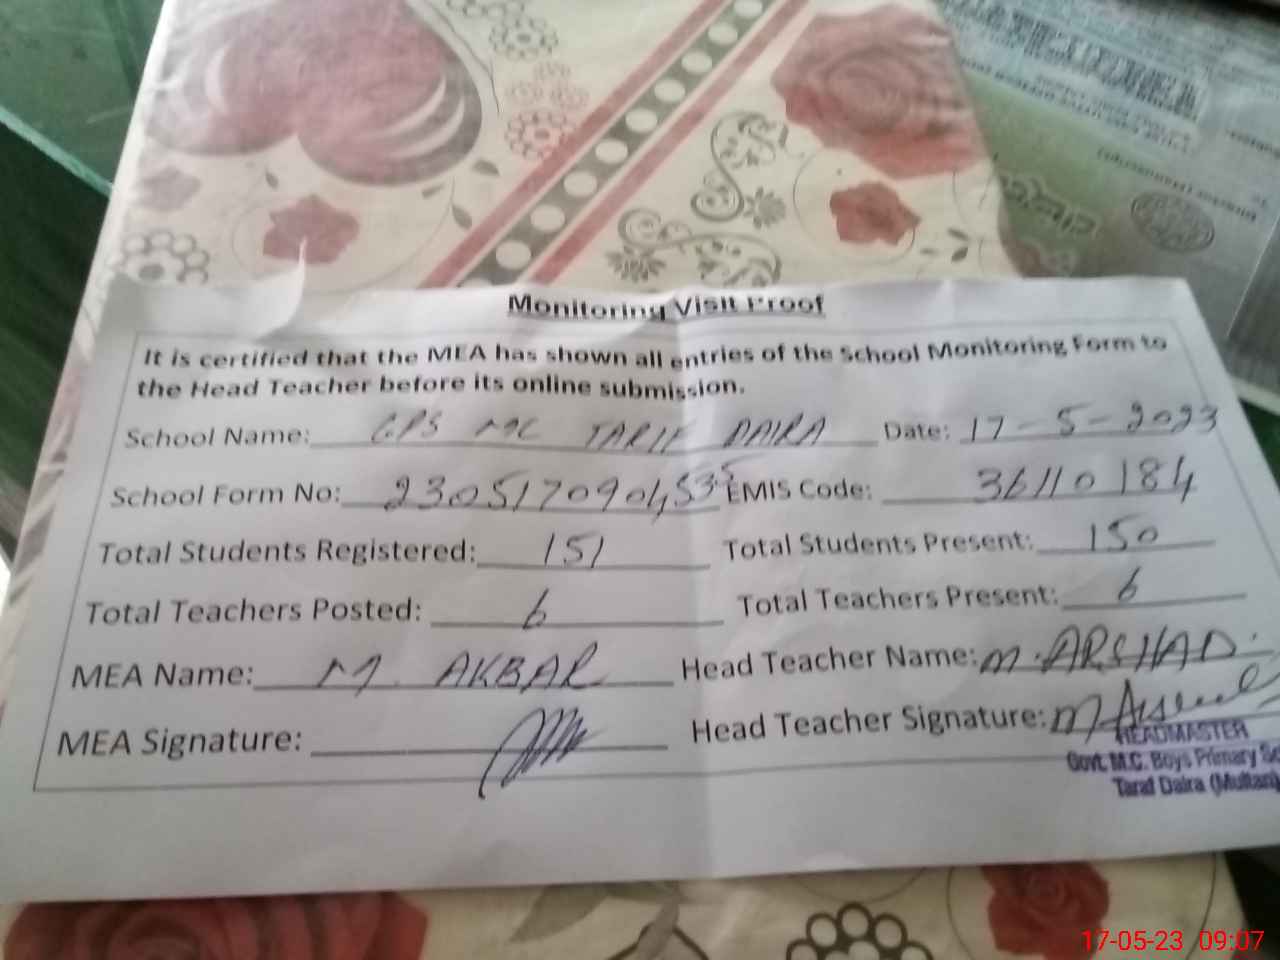 Monitoring Visit Proof
It is certified that the MEA has shown all entries of the School Monitoring Form to
the Head Teacher before its online submission.
School Name: GPS MC TARIF DAIRA Date: 17-5-2023
School Form No: 2305170904535 EMIS Code: 36110184
Total Students Registered: 151 Total Students Present: 150
Total Teachers Posted: 6 Total Teachers Present: 6
MEA Name: M. AKBAR Head Teacher Name: M. ARSHAD.
MEA Signature: Head Teacher Signature: M Arshad
HEADMASTER
Govt. M.C. Boys Primary
Taraf Daira (Multan)
17-05-23 09:07